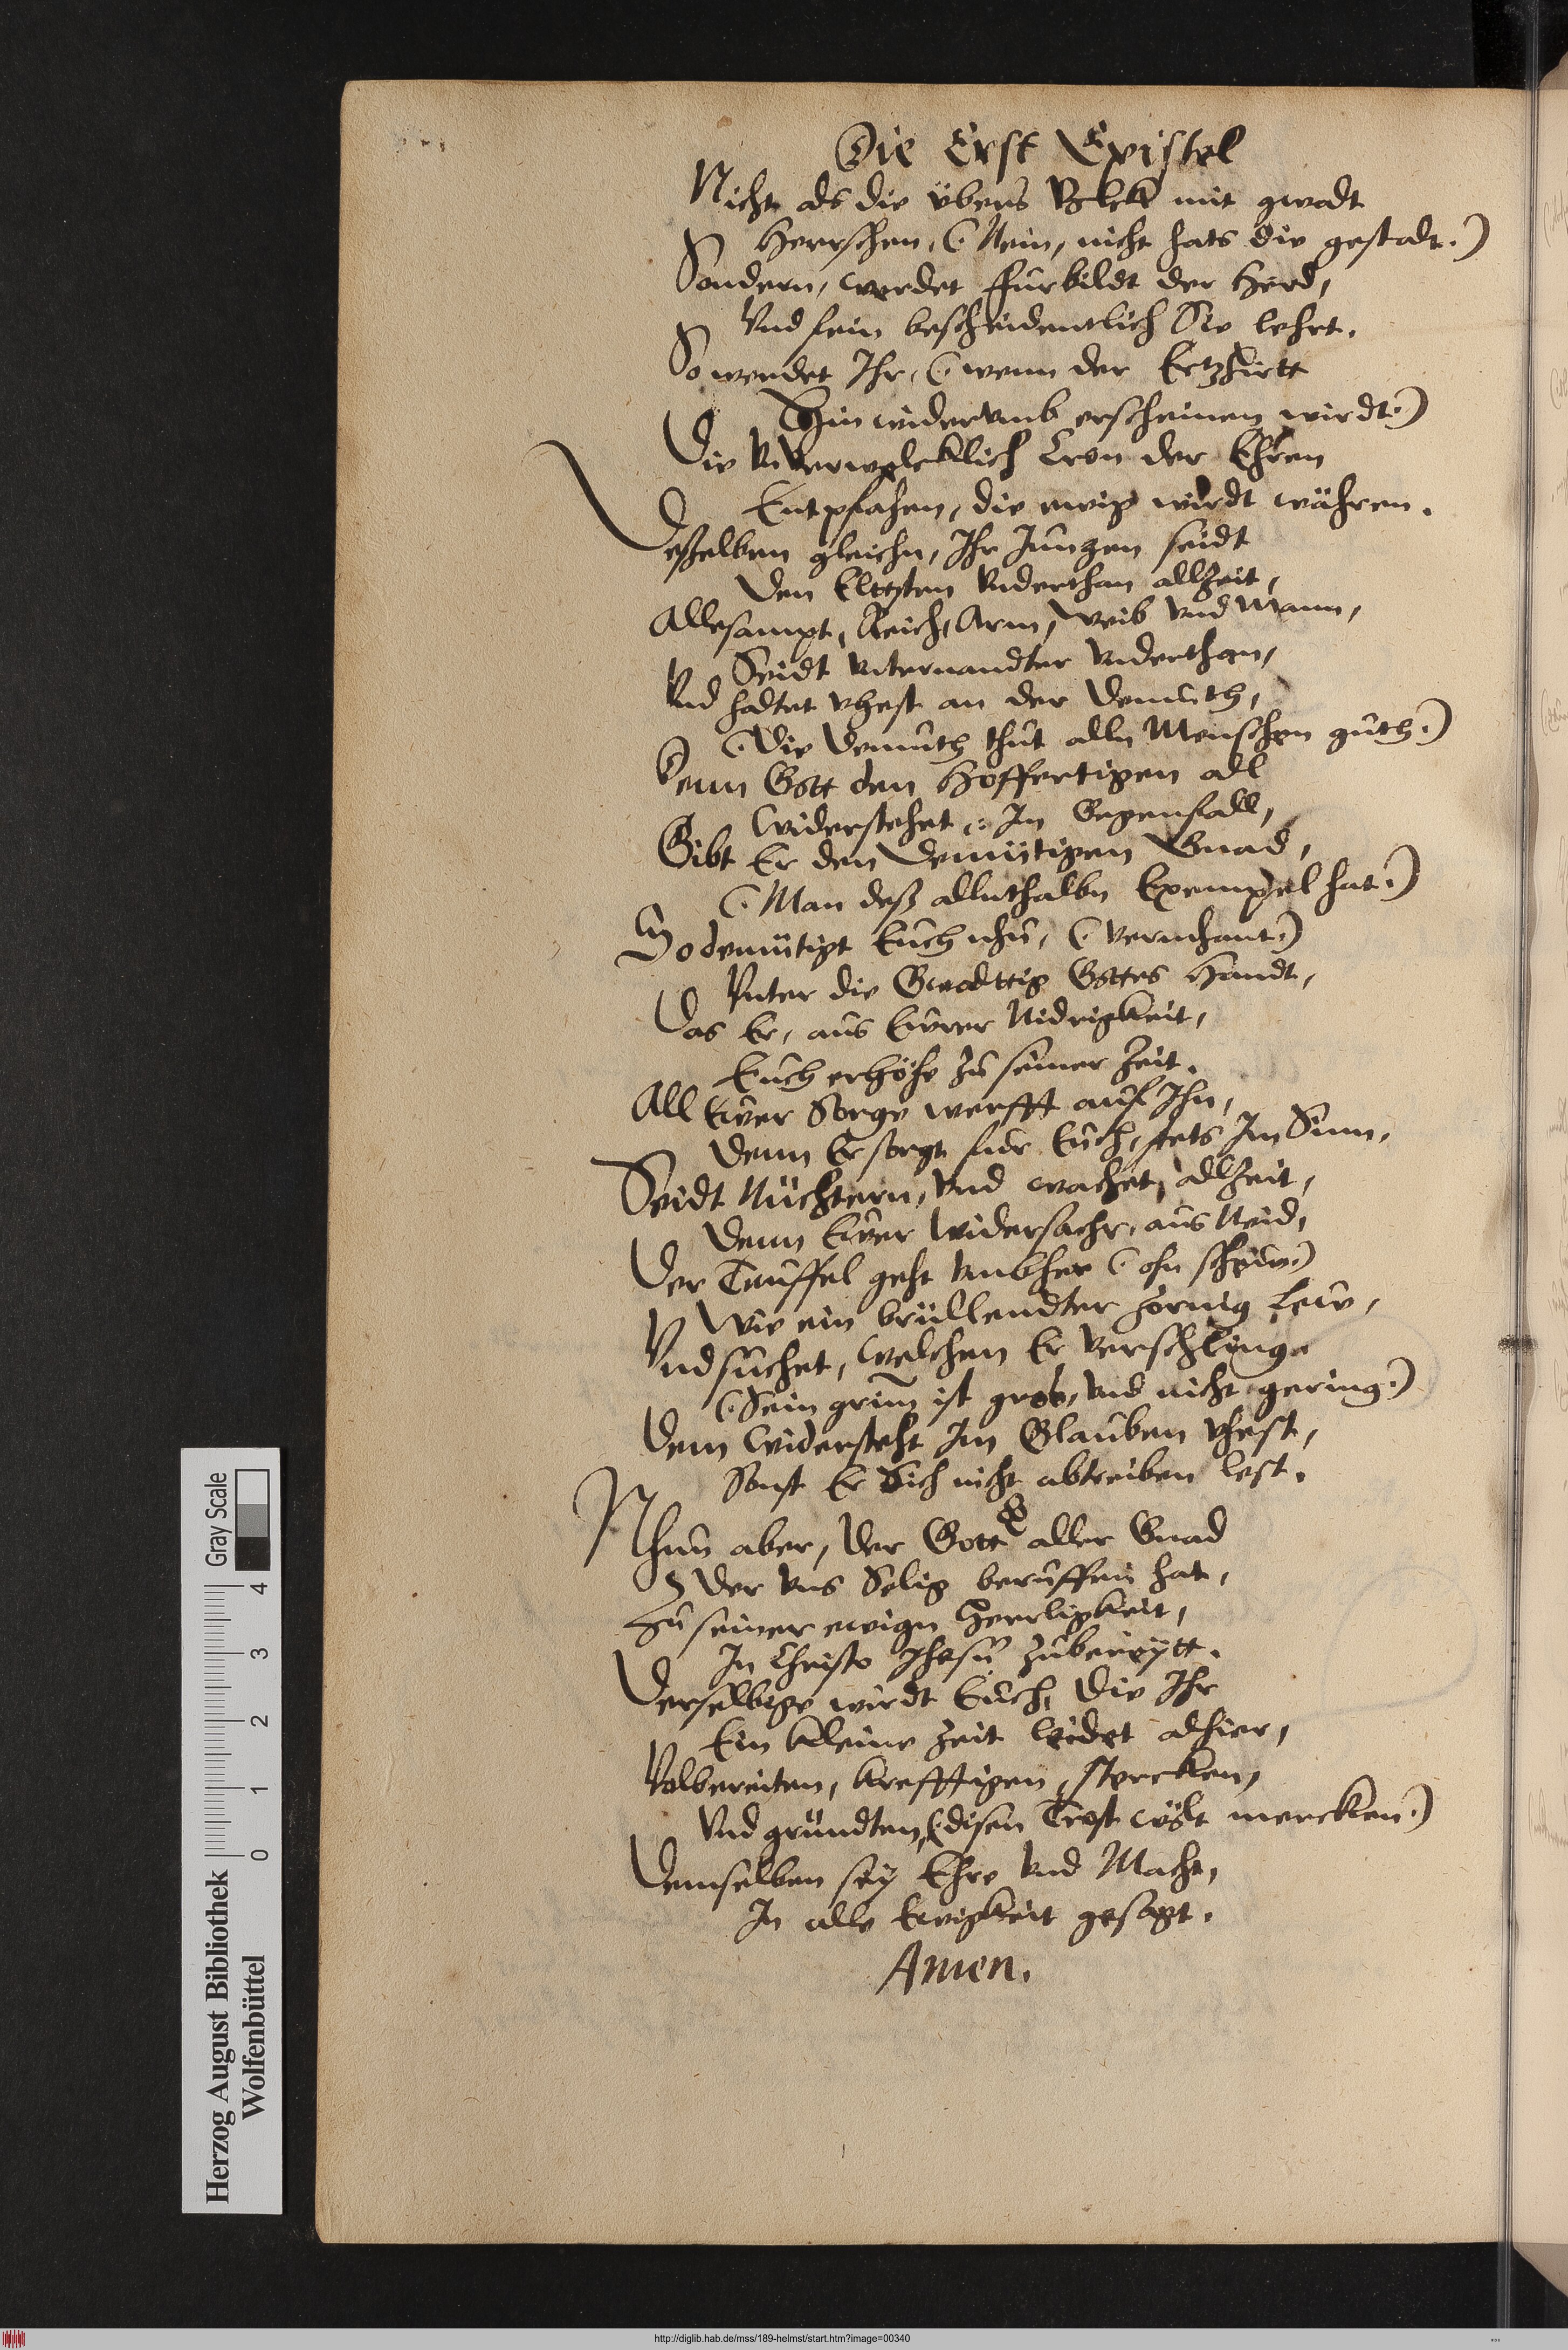 Die Erst Epistel
Nicht als die übers Volck mit gwalt
Herrschen, (Nein, nicht hats die gestalt.)
Sondern, werdet Furbildt der Herd,
Vnd fein bescheidentlich Sie lehrt.
So werdet Ihr, (wenn der Ertzhirtt
Hin widerumb erscheinen wirdt.)
Die Vnverwelcklich Cron der Ehren
Entpfahen, die ewig wirdt währen.
Deßelben gleichn, Ihr Jungen seidt
Den Eltesten Vnderthan allzeit,
Allesampt, Reich, Arm, Weib Vnd Mann,
Seidt Vnternandter Vnderthan,
Vnd haltet vhest an der Demuth,
(Die Demuth thut alln Menschen guth.)
Denn Gott den Hoffertigen all
Widerstehet, In Gegenfall,
Gibt Er den Demütigen Gnad,
(Man deß allnthalbn Exempel hat.)
So demütigt Euch nhu, (Vermhant.)
Vnter die Gwaltig Gottes Handt,
Das Er, aus Eurer Nidrigkeit,
Euch erhöhe zu seiner Zeit.
All Ewer Sorge werfft auf Ihn,
Denn Er sorgt fur Euch, stets Im Sinn.
Seidt Nüchtern, Vnd wachet, allzeit,
Denn Ewer Widersachr, aus Neid,
Der Teuffel geht Vmbher (ohn schew.)
Wie ein brüllendter zornig Lew,
Vnd suchet, welchen Er verschling
(Sein grim ist gros, Vnd nicht gering.)
Dem Widersteht Im Glauben vhest,
Sonst Er Sich nicht abtreiben lest.
Nhun aber, Der Gott aller Gnad
Der Vns Selig beruffen hat,
Zu seiner ewign Herrligkeit,
In Christo Jhesu zubereytt.
Derselbige wirdt Euch, Die Ihr
Ein kleine Zeit leidet alhier,
Volbereiten, krefftigen, stercken,
Vnd gründten, (disen Trost wölt mercken.)
Demselben sey Ehre Vnd Macht,
In alle Ewigkeit gesagt.
Amen.
Herzog August Bibliothek
Wolfenbüttel
0 1 2 3 4
Gray Scale
http://diglib.hab.de/mss/189-helmst/start.htm?image=00340